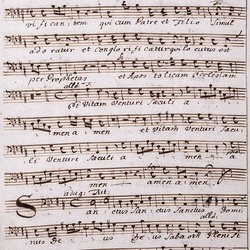 vificantem qui cum Patre et Filio Simul
adoratur et conglorificatur qui locutus est
per Prophetas et Apostolicam Ecclesiam
allo
et Vitam Venturi Saeculi a
men amen et vitam Venturi Saecu
li Venturi Saeculi a
men amen a men
adag:
Sanctus Sanctus Sanctus Domi
allo
nus Deus Deus Sabaoth Pleni